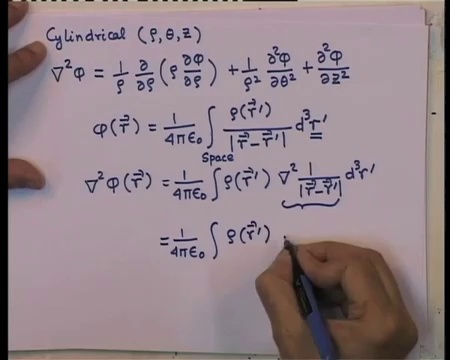 Cylindrical (ρ, θ, z)
∇²φ = 1/ρ ∂/∂ρ (ρ ∂φ/∂ρ) + 1/ρ² ∂²φ/∂θ² + ∂²φ/∂z²
φ(r⃗) = 1/4πε₀ ∫ ρ(r⃗′)/|r⃗−r⃗′| d³r′
Space
∇²φ(r⃗) = 1/4πε₀ ∫ ρ(r⃗′) ∇² 1/|r⃗−r⃗′| d³r′
= 1/4πε₀ ∫ ρ(r⃗′)